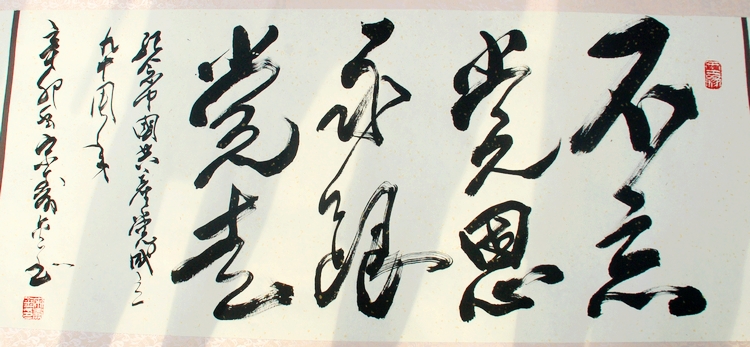 不忘
党恩
永跟
党走
纪念中国共产党成立
九十周年
辛卯